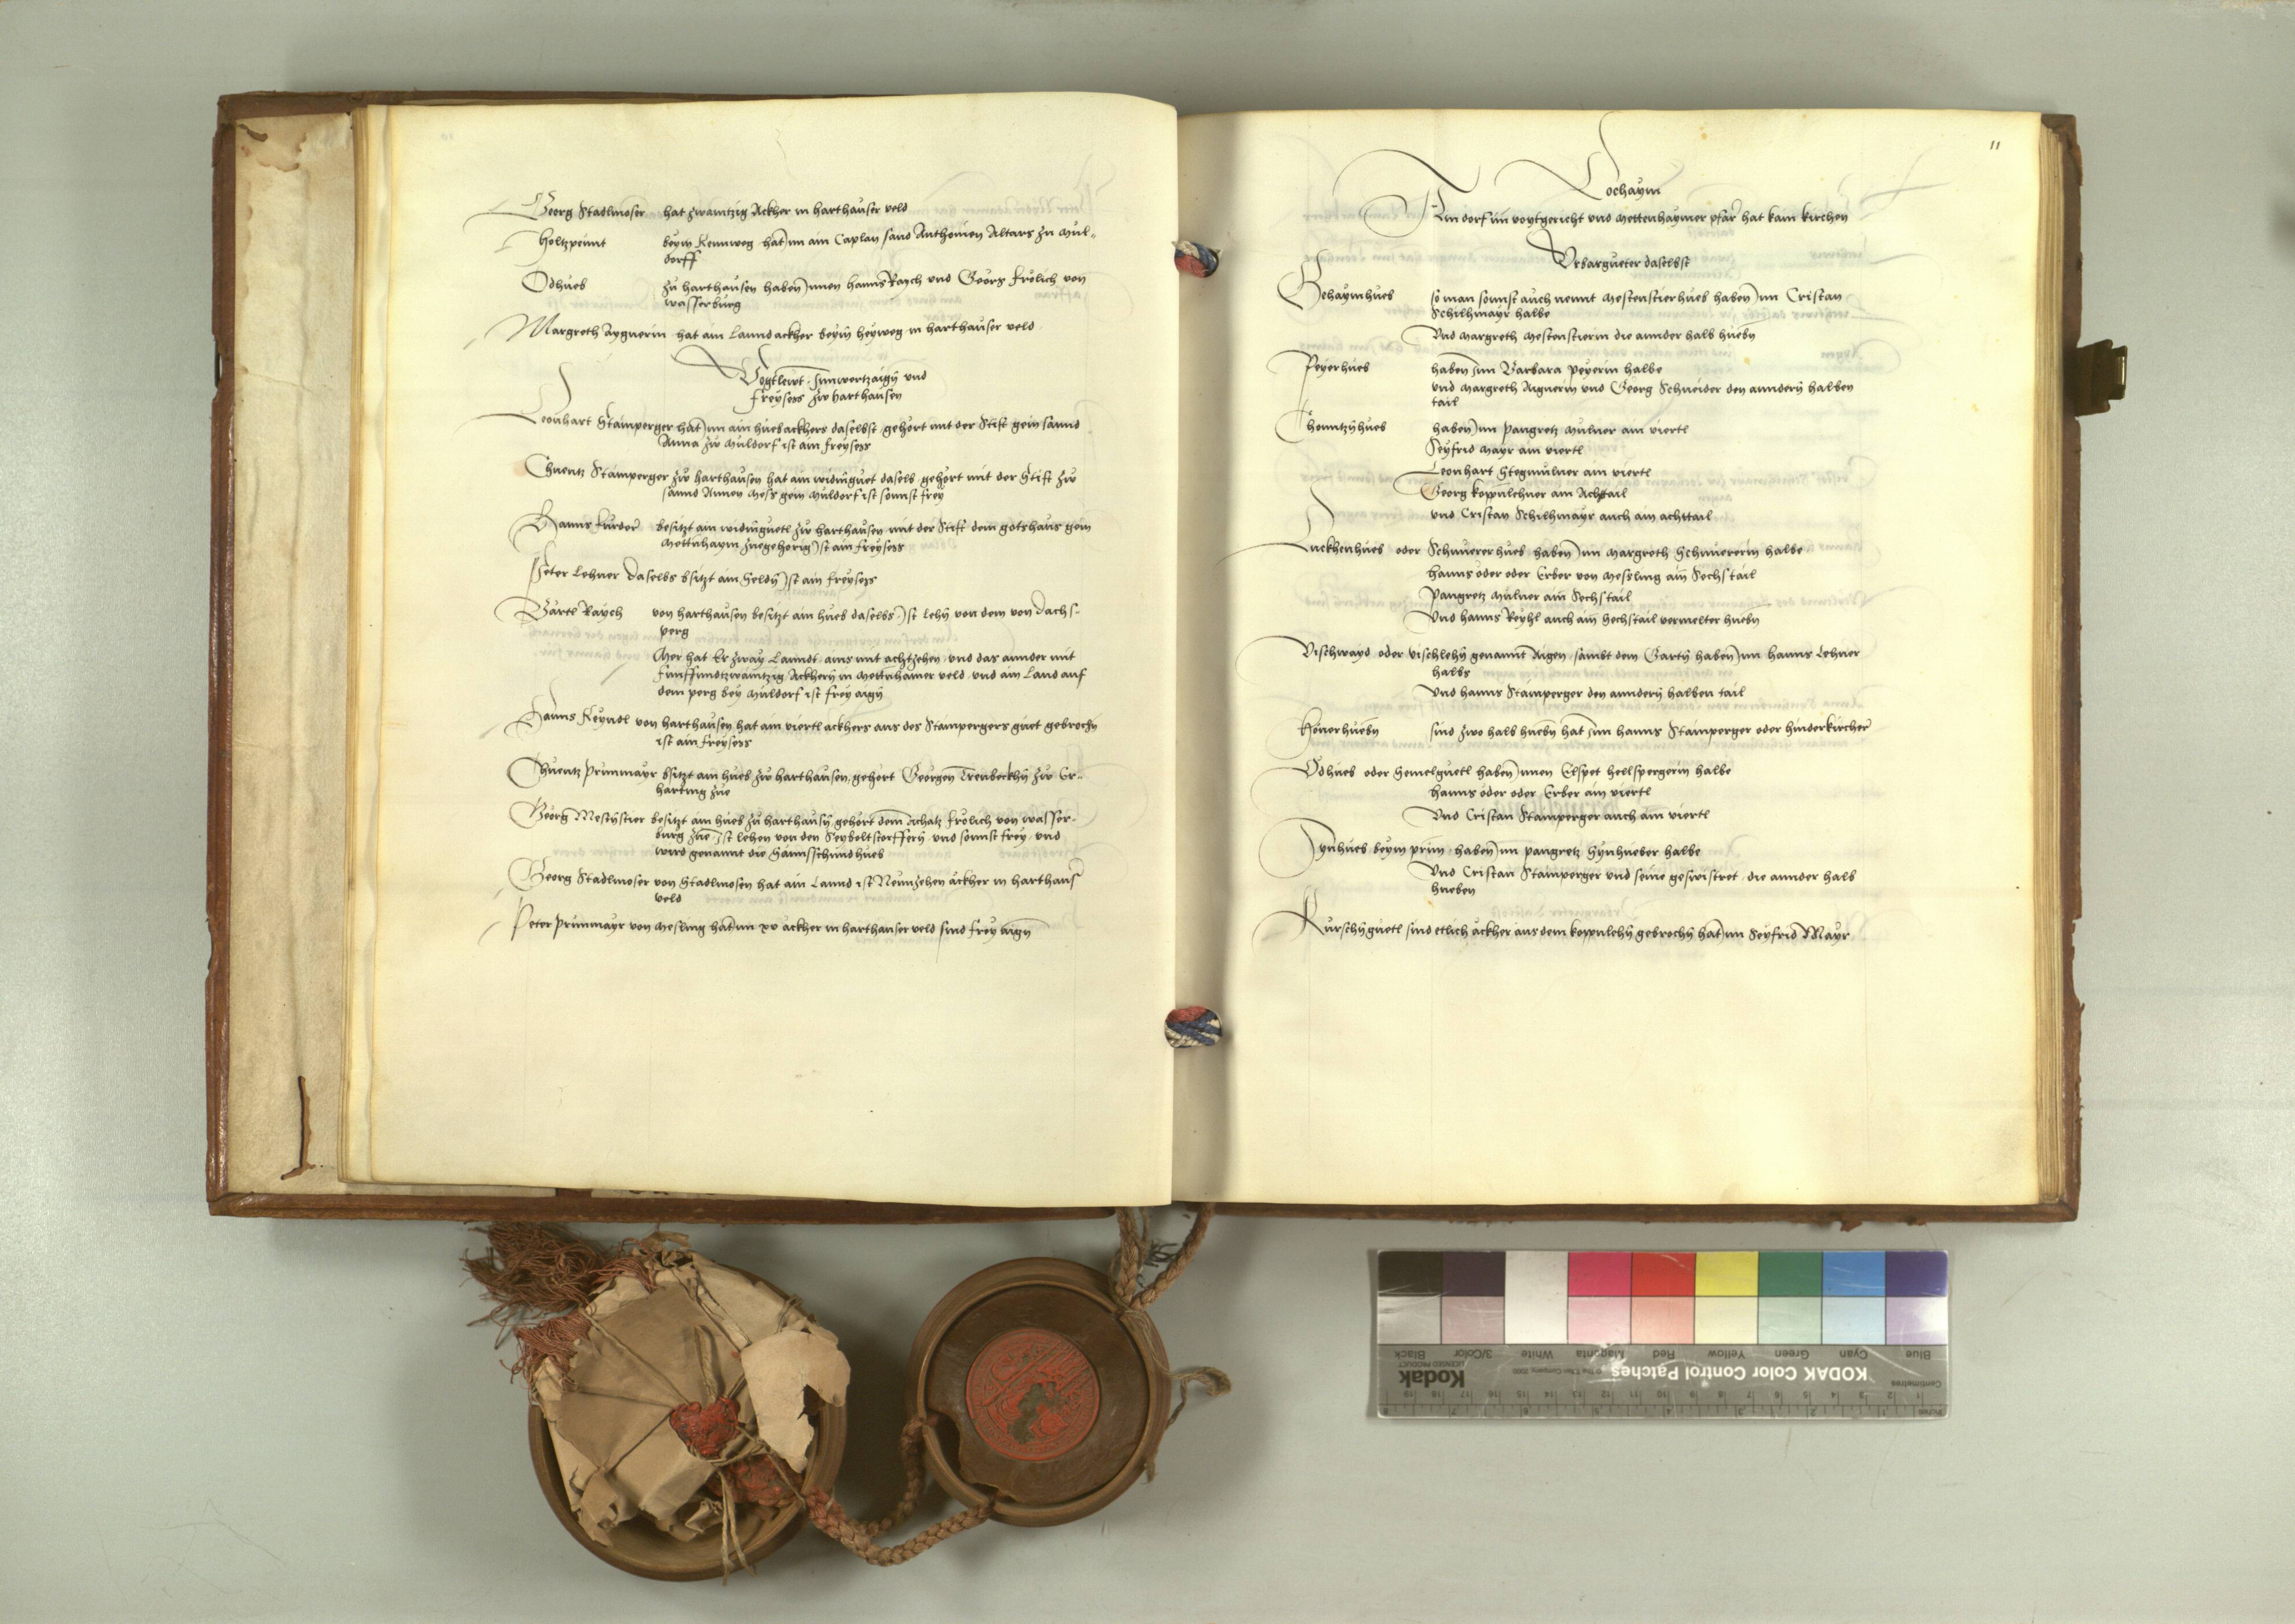 Georg Stadlmoser hat zwaintzig Ackher in harthauser veld
Holtzpeunt beym Rennweg hat Inn ain Caplan sand Anthonien Altars zu Mul-
dorff
Odhueb zu harthausen haben Innen hanns Raych und Georg frölich von
wasserburg
Margreth Aygnerin hat ain Lanndackher beym heyweg in harthauser veld
Vogtlewt Innwertzaigen und
freysess zw harthausen
Leonhart Stamperger hat Inn ain hueb ackhers daselbst gehort mit der Stift gein sannd
Anna zw Muldorf ist ain freysess
Chuentz Stamperger zw harthausen hat ain widmguet daselb gehort mit der Stift zw
sannd Annen Mess gein Muldorf ist sonnst frey
Hanns furder besitzt ain widmguetl zw harthausen mit der Stift dem gotshaus gein
Mettnhaym zuegehorig Ist ain freysess
Peter Lehner daselbs bsitzt ain Seldn Ist ain freysess
Bärtl Raych von harthausen besitzt ain hueb daselbs Ist Lehn von dem von Dachs-
perg
Mer hat Er zway Lanndt ains mit achtzehen und das annder mit
funffundtzwaintzig Ackhern in Mettnhamer veld und ain Land auf
dem perg bey Muldorf ist frey aign
Hanns Reyndl von harthausen hat ain viertl ackhers aus des Stampergers guet gebrochn
ist ain freysess
Chuentz Prunmayr bsitzt ain hueb zw harthausen gehort Georgen Trenbeckhn zw Er-
harting zue
Georg Mestnstier besitzt ain hueb zu harthausn gehort dem Achatz frölich von wasser-
burg zue Ist lehen von den Seyboltstorffern und sonnst frey und
wird genannt die Hannsschmidhueb
Georg Stadlmoser von Stadlmosen hat ain Lannd ist Newnzehen äckher in harthauser
veld
Peter Prunmayr von Mesling hat Inn xv äckher in harthauser veld sind frey aign
11
Lochaym
Ain dorf im voytgericht und Mettenhaymer pfarr hat kain kirchen
Urbargueter daselbst
Behaymhueb so man sonnst auch nennt Mestenstierhueb haben Inn Cristan
Schilhmayr halbe
Und Margreth Mestenstierin die annder halb huebn
Peyerhueb haben Inn Barbara Peyerin halbe
und Margreth Aignerin und Georg Schneider den anndern halben
tail
Chonntznhueb haben Inn Pangretz Mulner ain viertl
Seyfrid Mayr ain viertl
Leonhart Stegmulner ain viertl
Georg koppnlehner ain Achttail
und Cristan Schilhmayr auch ain achttail
Luckhenhueb oder Schmererhueb haben Inn Margreth Schmererin halbe
hanns oder oder Erber von Messling ain Sechstail
Pangretz Mulner ain Sechstail
Und hanns Reyhl auch ain Sechstail vermelter huebn
Vischwayd oder vischlehn genannt Aigen sambt dem Gartn haben Inn hanns Lehner
halbs
Und hanns Stamperger den anndern halben tail
Honerhuebn sind zwo halb huebn hat Inn hanns Stamperger oder hinderkircher
Odhueb oder Hemelguetl haben Innen Elspet hellspergerin halbe
hanns oder oder Erber ain viertl
Und Cristan Stamperger auch ain viertl
Synhueb beym prun haben Inn Pangretz Synhueber halbe
Und Cristan Stamperger und seine geswistret die annder halb
hueben
Kurschnguetl sind etlich äckher aus dem koppnlehn gebrochn hat Inn Seyfrid Mayr
KODAK Color Control Patches
Kodak
LICENSED PRODUCT
Black
3/Color
White
Magenta
Red
Yellow
Green
Cyan
Blue
Centimetres
Inches